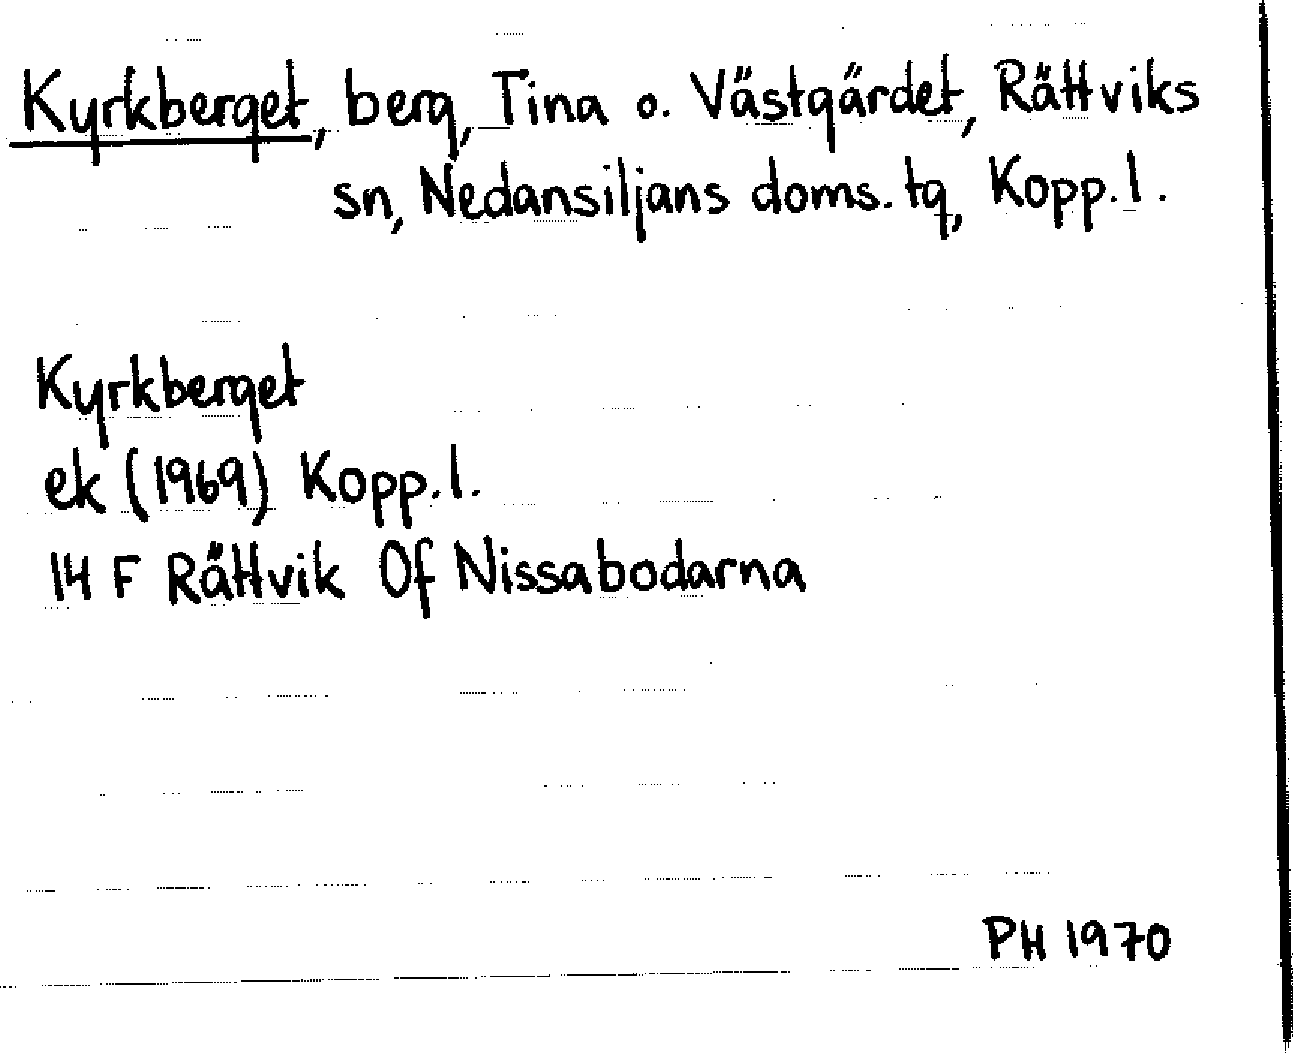 Kyrkberget, berg, Tina o. Västgärdet, Rättviks
sn, Nedansiljans doms. tg, Kopp. l.
Kyrkberget
ek (1969) Kopp. l.
14 F Rättvik Of Nissabodarna
PH 1970